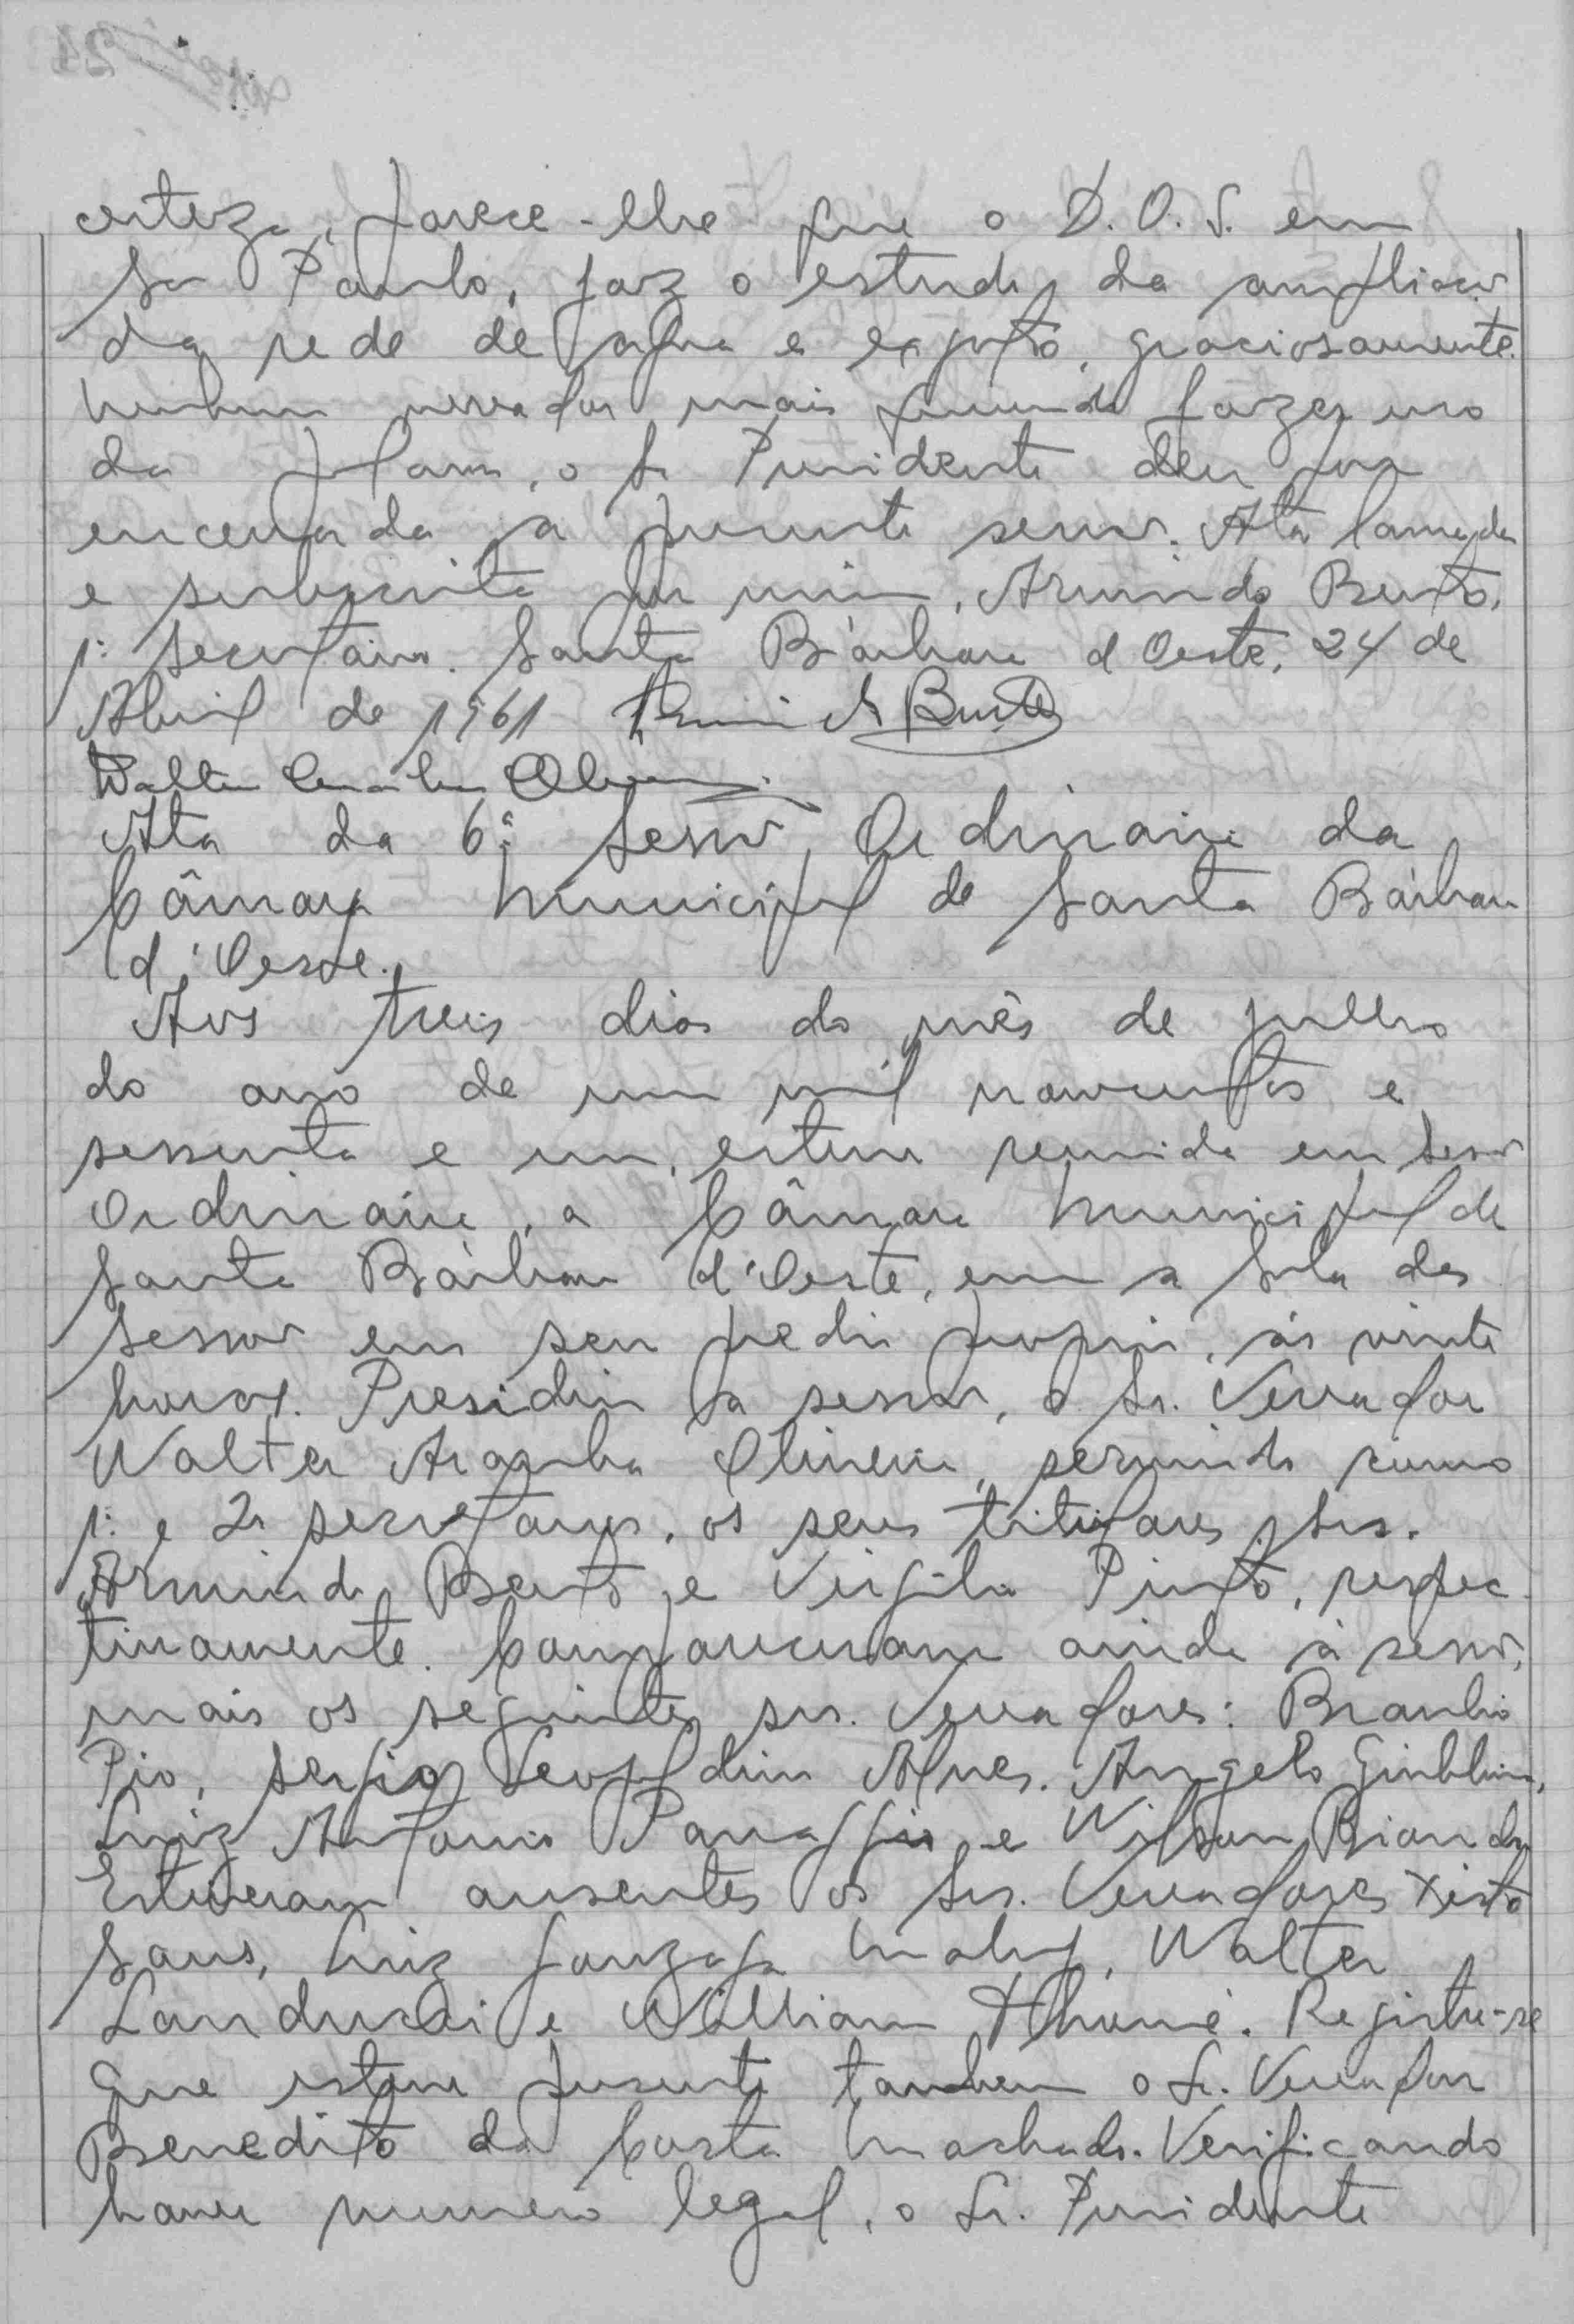 certeza, parece-lhe que o D.O.S. em
São Paulo, faz o estudo da ampliação
da rede de agua e exgoto, graciosamente.
Nenhum vereador mais querendo fazer uso
da palavra, o Sr Presidente deu por
encerrada a presente sessão. Ata lavrada
e subscrita por mim, Armindo Bento,
1º Secretário. Santa Bárbara d Oeste, 24 de
Abril de 1961 Armindo Bento
Walter Oliveira
Ata da 6ª Sessão Ordinária da
Câmara Municipal de Santa Bárbara
d'Oeste.
Aos treis dias do mês de julho
do ano de um mil novecentos e
sessenta e um, esteve reunida em Sessão
Ordinária, a Câmara Municipal de
Santa Bárbara d'Oeste, em a Sala das
Sessões em seu predio proprio, às vinte
horas. Presidiu a sessão, o Sr. Vereador
Walter Aranha Oliveira, servindo como
1º e 2º secretarios, os seus titulares, Srs.
Armindo Bento e Virgilio Pinto, respec-
tivamente. Compareceram ainda à sessão,
mais os seguintes srs. Vereadores: Braulio
Pio, Sergio Leopoldino Alves, Angelo Giubbina,
Luiz Antonio Panaggio e Wilson
Estiveram ausentes os Srs. Vereadores Xisto
Sans, Luiz Gonzaga Maluf, Walter
Landucci e William Thomé. Registre-se
que esteve presente tambem o Sr. Vereador
Benedito da Costa Machado. Verificando
haver numero legal, o Sr. Presidente